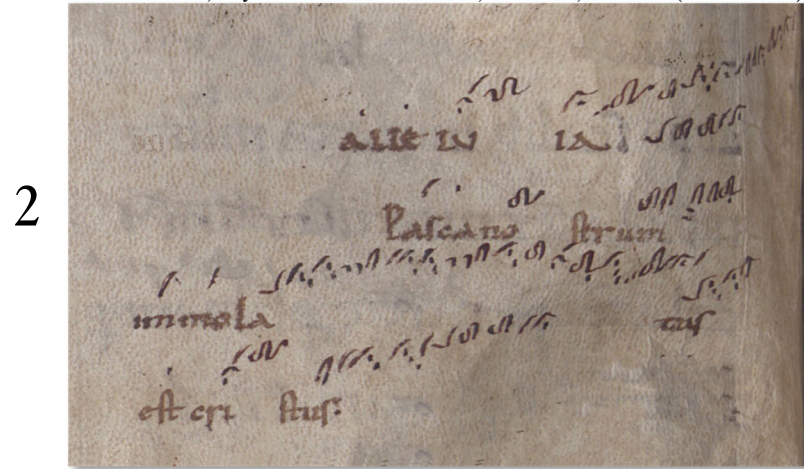 2
alle lu ia
Pascano strum
immola tus
est cri stus: